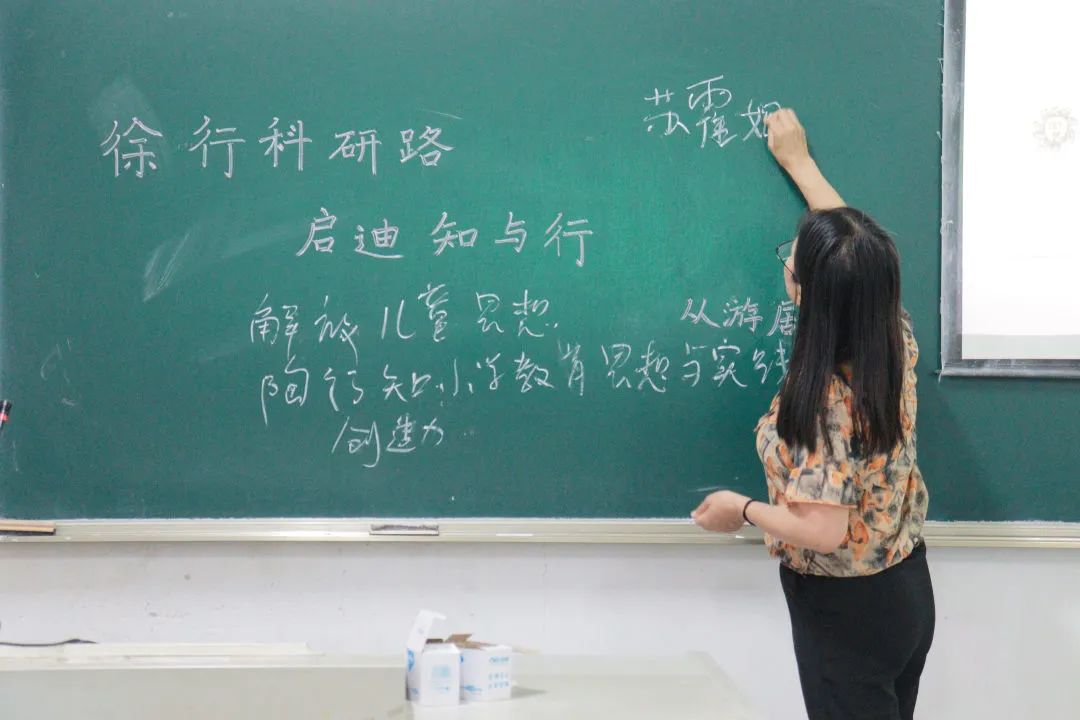 徐行科研路
苏霍姆
启迪知与行
解放儿童思想
从游居
陶行知小学教育思想与实践
创造力